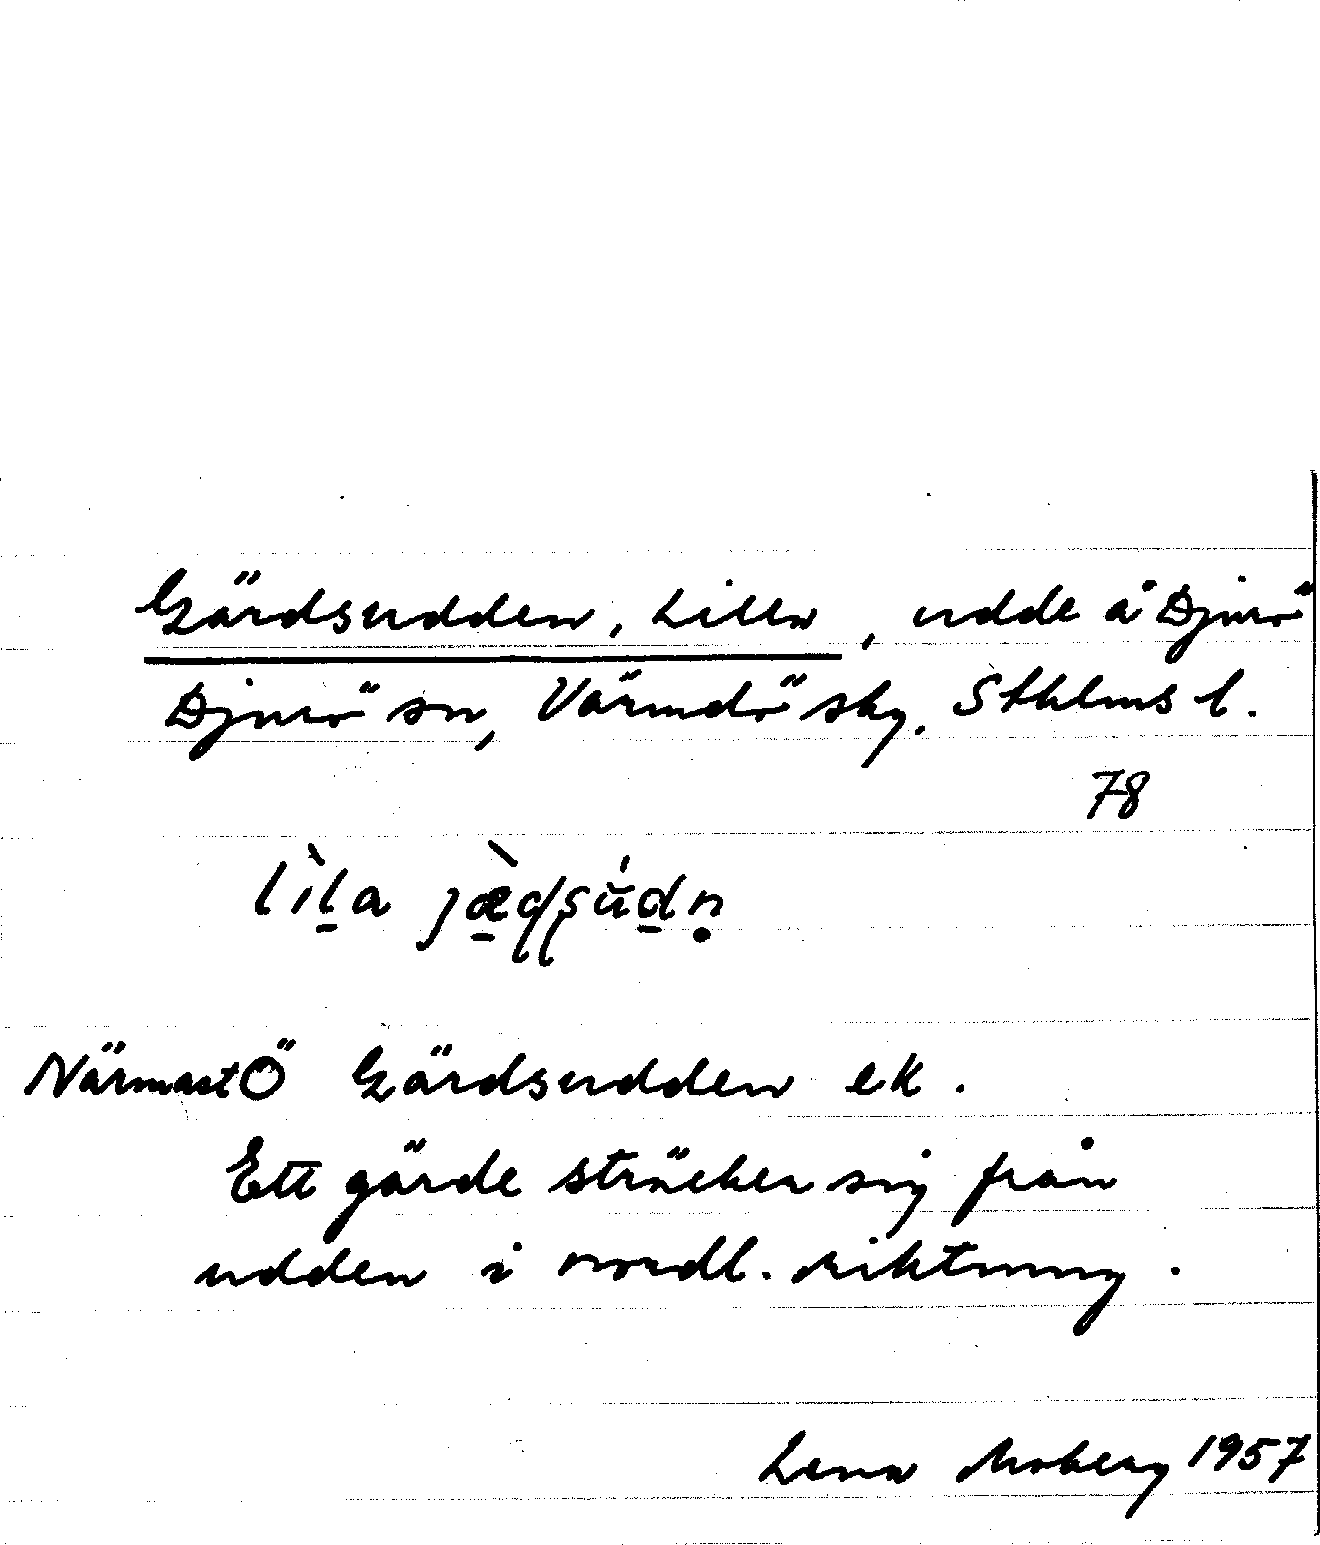 Gärdsudden, Lilla, udde å Djurö
Djurö sn, Värmdö skg. Sthlms l.
78
lìl̠a jæ̠̀ɖʂú̆d̠ṇ
Närmast Ö Gärdsudden ek.
Ett gärde sträcker sig från
udden i nordl. riktning.
Lena Moberg 1957